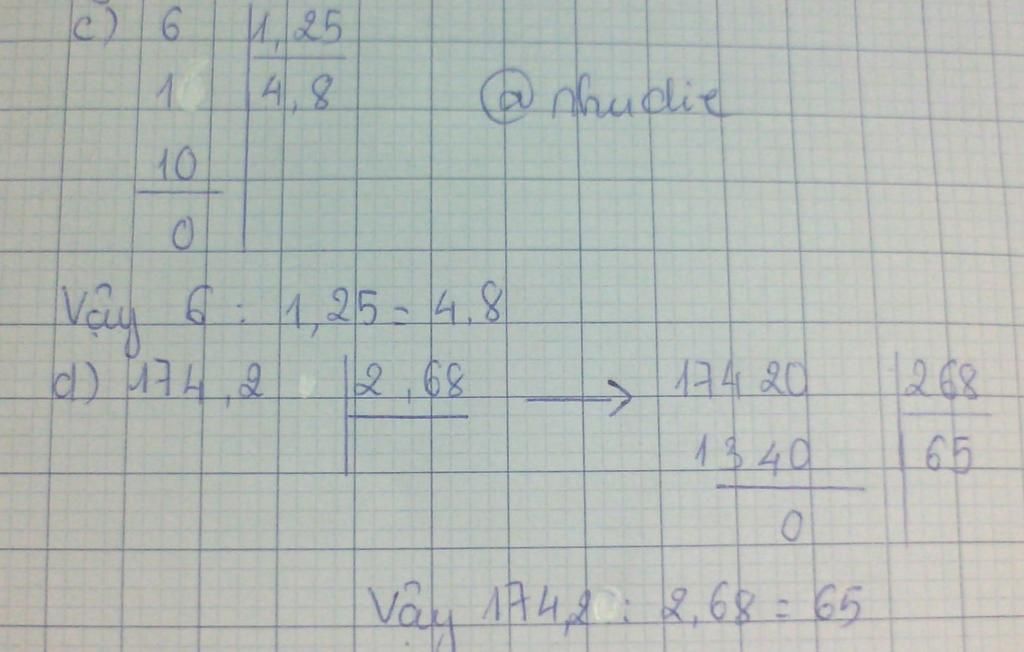 c) 6 1,25
1 4,8
@nhudie
10
0
Vậy 6 : 1,25 = 4,8
d) 174,2 2,68 → 17420 268
1340 65
0
Vậy 174,2 : 2,68 = 65